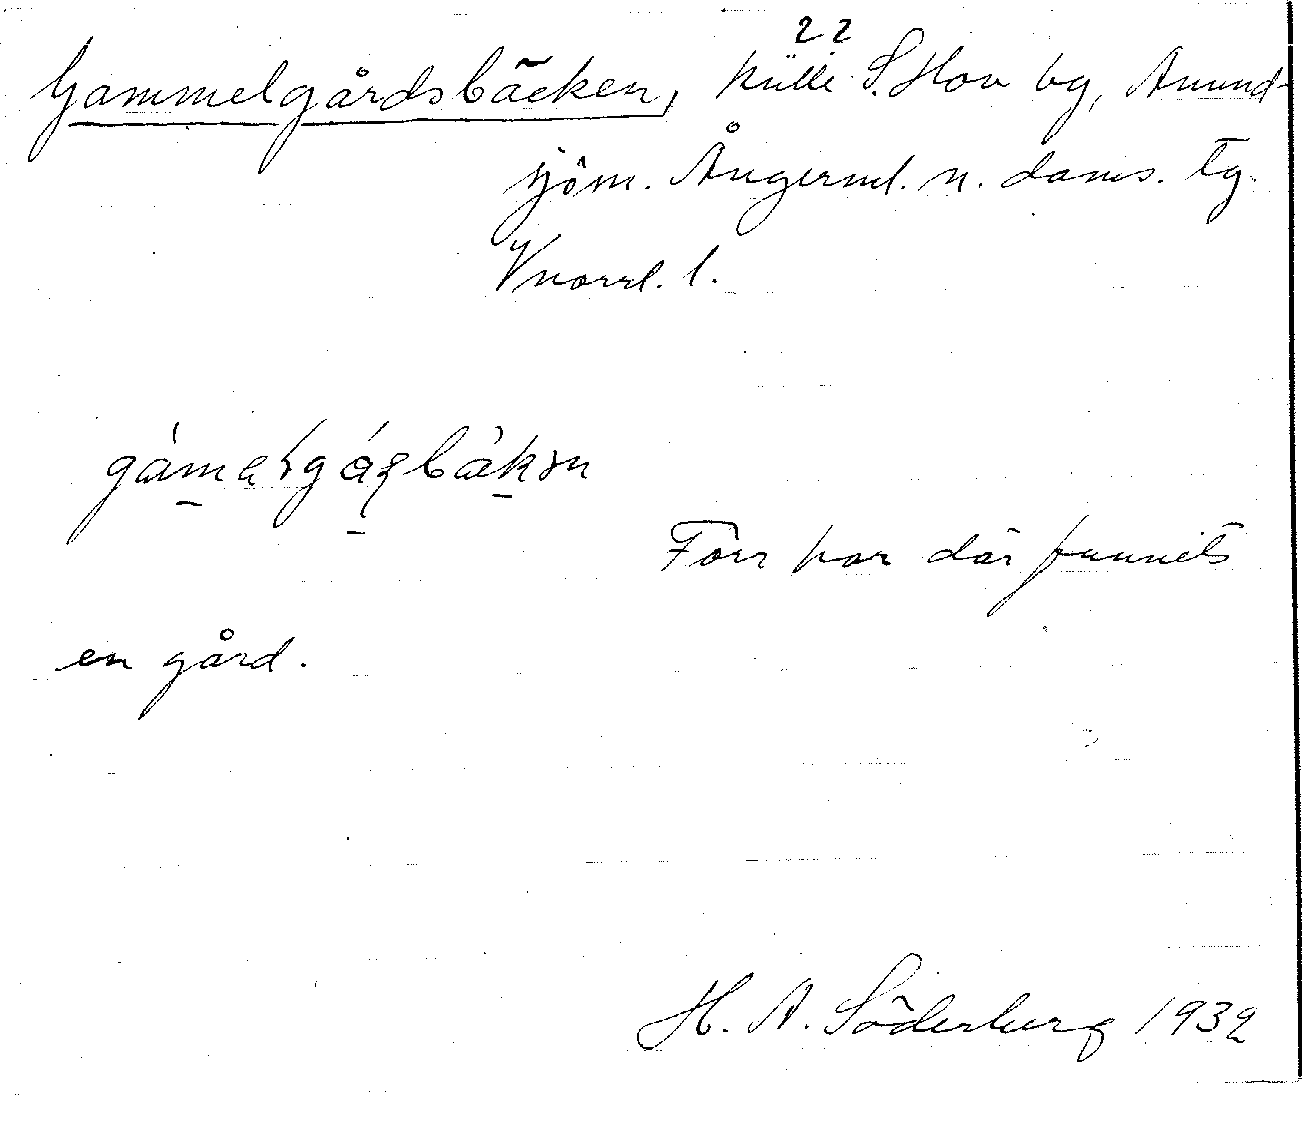 22
Gammelgårdsbäcken, källe S. Hov by, Anund-
sjöm. Ångerml. n. doms. tg.
Vnorrl. l.
gámalgáṣbäkən
Förr har där funnits
en gård.
H. A. Söderberg 1932